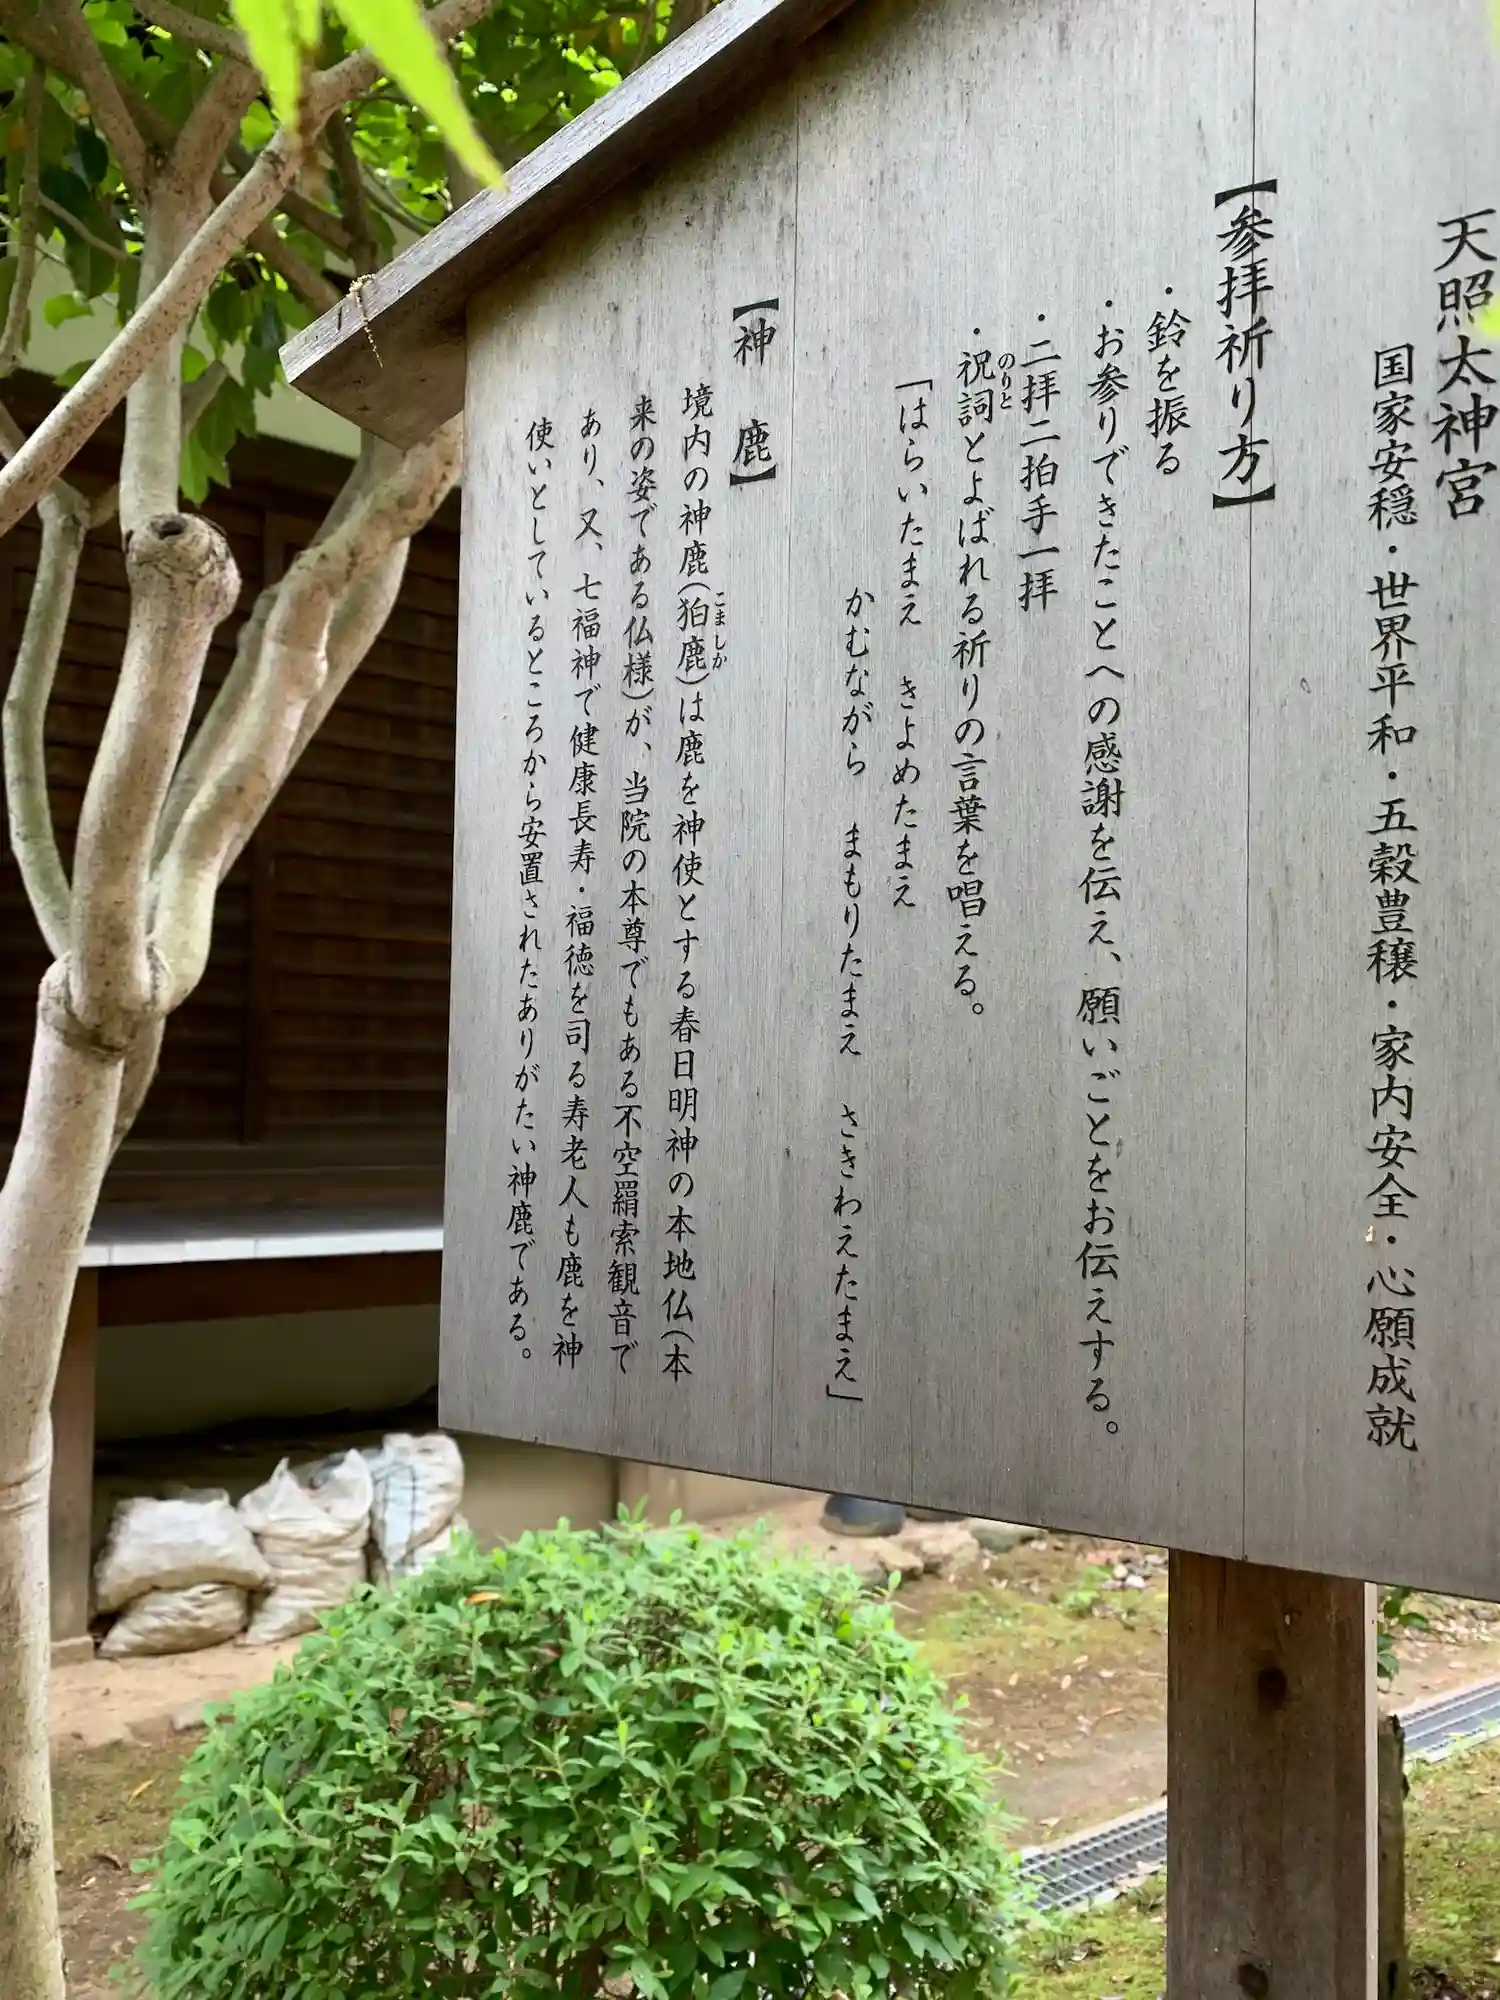 天照太神宮
国家安穏・世界平和・五穀豊穣・家内安全・心願成就
【参拝祈り方】
・鈴を振る
・お参りできたことへの感謝を伝え、願いごとをお伝えする。
・二拝二拍手一拝
・祝詞とよばれる祈りの言葉を唱える。
のりと
「はらいたまえ きよめたまえ
かむながら まもりたまえ さきわえたまえ」
【神 鹿】
境内の神鹿(狛鹿)は鹿を神使とする春日明神の本地仏(本
こましか
来の姿である仏様)が、当院の本尊でもある不空羂索観音で
あり、又、七福神で健康長寿・福徳を司る寿老人も鹿を神
使いとしているところから安置されたありがたい神鹿である。